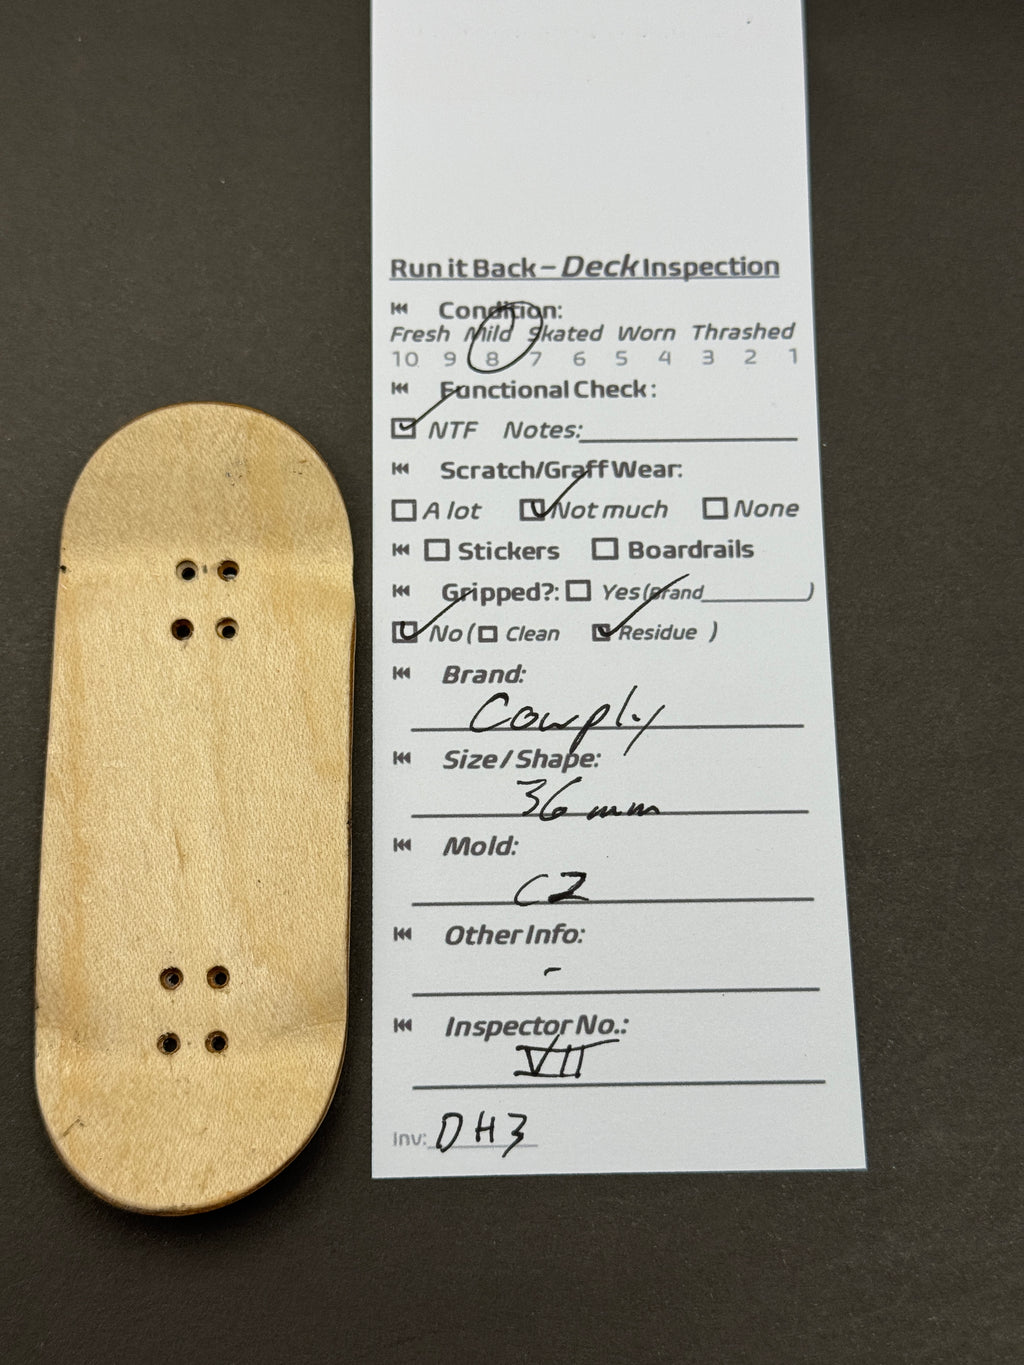 Run it Back – Deck Inspection
Condition:
Fresh Mild Skated Worn Thrashed
10 9 8 7 6 5 4 3 2 1
Functional Check:
NTF Notes:
Scratch/Graff Wear:
A lot Not much None
Stickers Boardrails
Gripped?: Yes (Brand )
No ( Clean Residue )
Brand:
Cowply
Size / Shape:
36 mm
Mold:
C2
Other Info:
-
Inspector No.:
VII
Inv: DH3